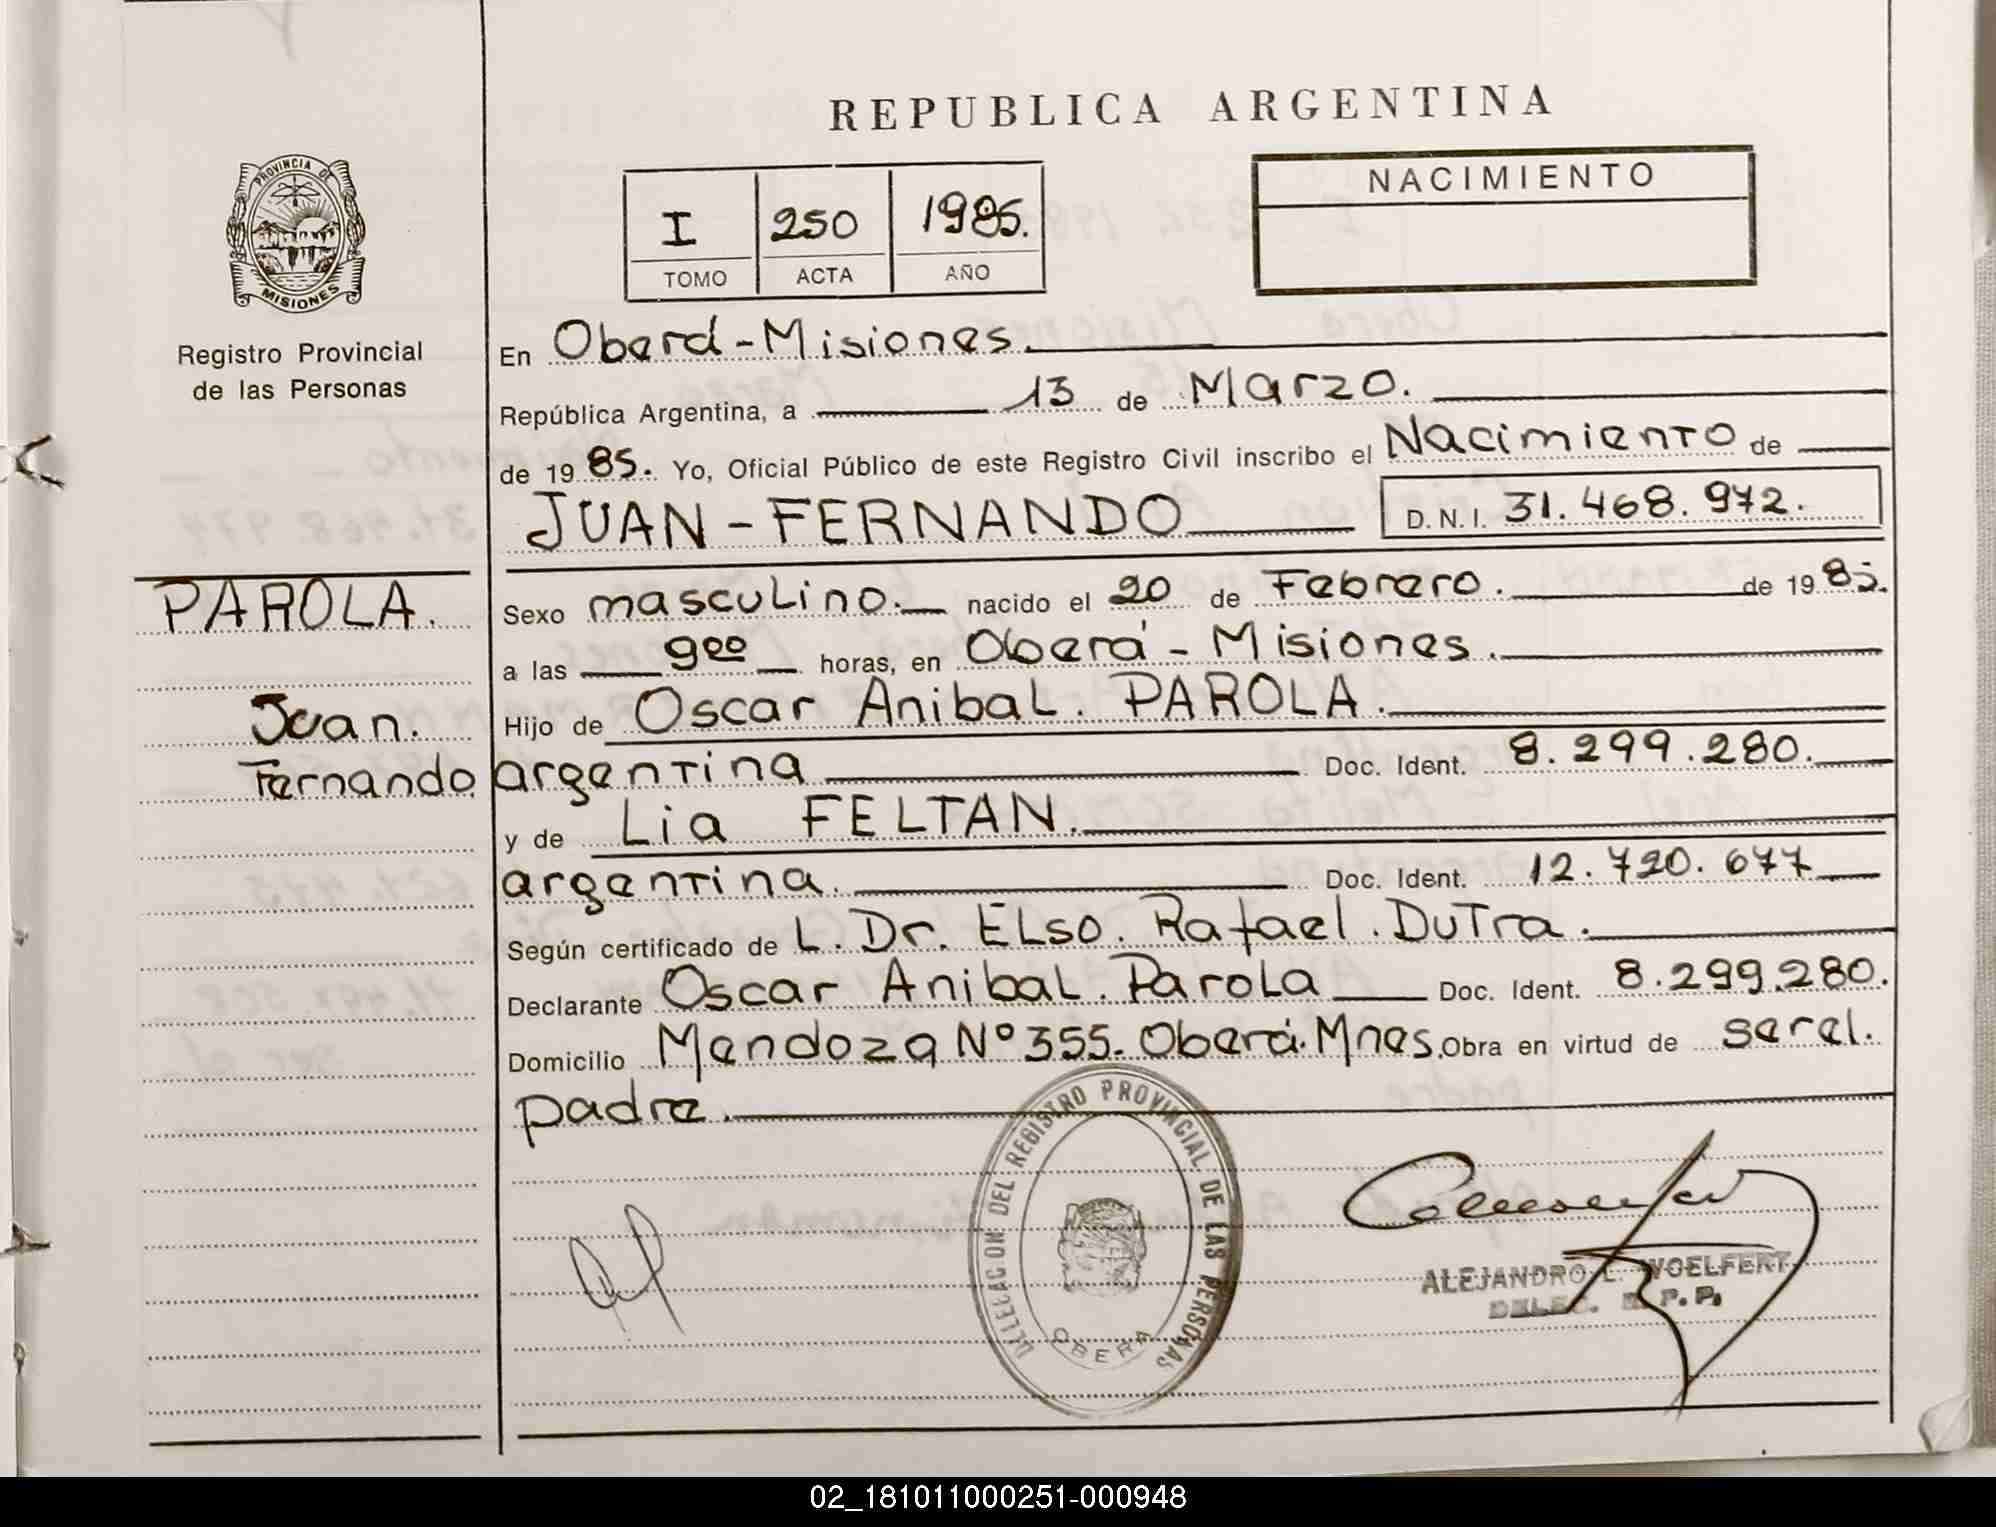 REPUBLICA ARGENTINA
PROVINCIA DE
MISIONES
Registro Provincial
de las Personas
I 250 1985.
TOMO ACTA AÑO
NACIMIENTO
En Oberá - Misiones.
República Argentina, a 13 de Marzo.
de 19 85. Yo, Oficial Público de este Registro Civil inscribo el Nacimiento de
JUAN - FERNANDO D.N.I. 31.468.972.
PAROLA.
Juan.
Fernando
Sexo masculino. nacido el 20 de Febrero. de 19 85.
a las 9 00 horas, en Oberá - Misiones.
Hijo de Oscar Anibal. PAROLA.
argentina Doc. Ident. 8.299.280.
y de Lia FELTAN.
argentina. Doc. Ident. 12.720.677
Según certificado de L. Dr. ELso. Rafael. DuTra.
Declarante Oscar Anibal. Parola Doc. Ident. 8.299.280.
Domicilio Mendoza Nº 355. Oberá. Mnes. Obra en virtud de ser el.
padre.
DELEGACION DEL REGISTRO PROVINCIAL DE LAS PERSONAS
OBERA
ALEJANDRO L. WOELFERT
DELEG. R. P. P.
02_181011000251-000948